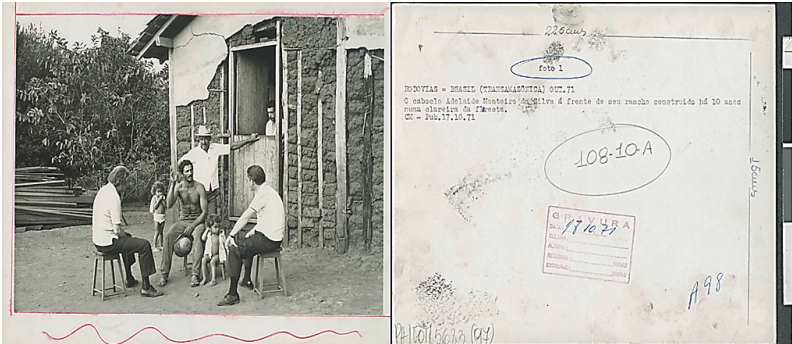 226 cms
foto 1
RODOVIAS = BRASIL (TRANSAMAZÔNICA) OUT.71
O caboclo Adelaide Monteiro da Silva á frente de seu rancho construído há 10 anos
numa clareira da floresta.
CM - Pub.17.10.71
108-10-A
15 cms
GRAVURA
DATA
COLUNA
ALTURA
HORAS
HORAS
A98